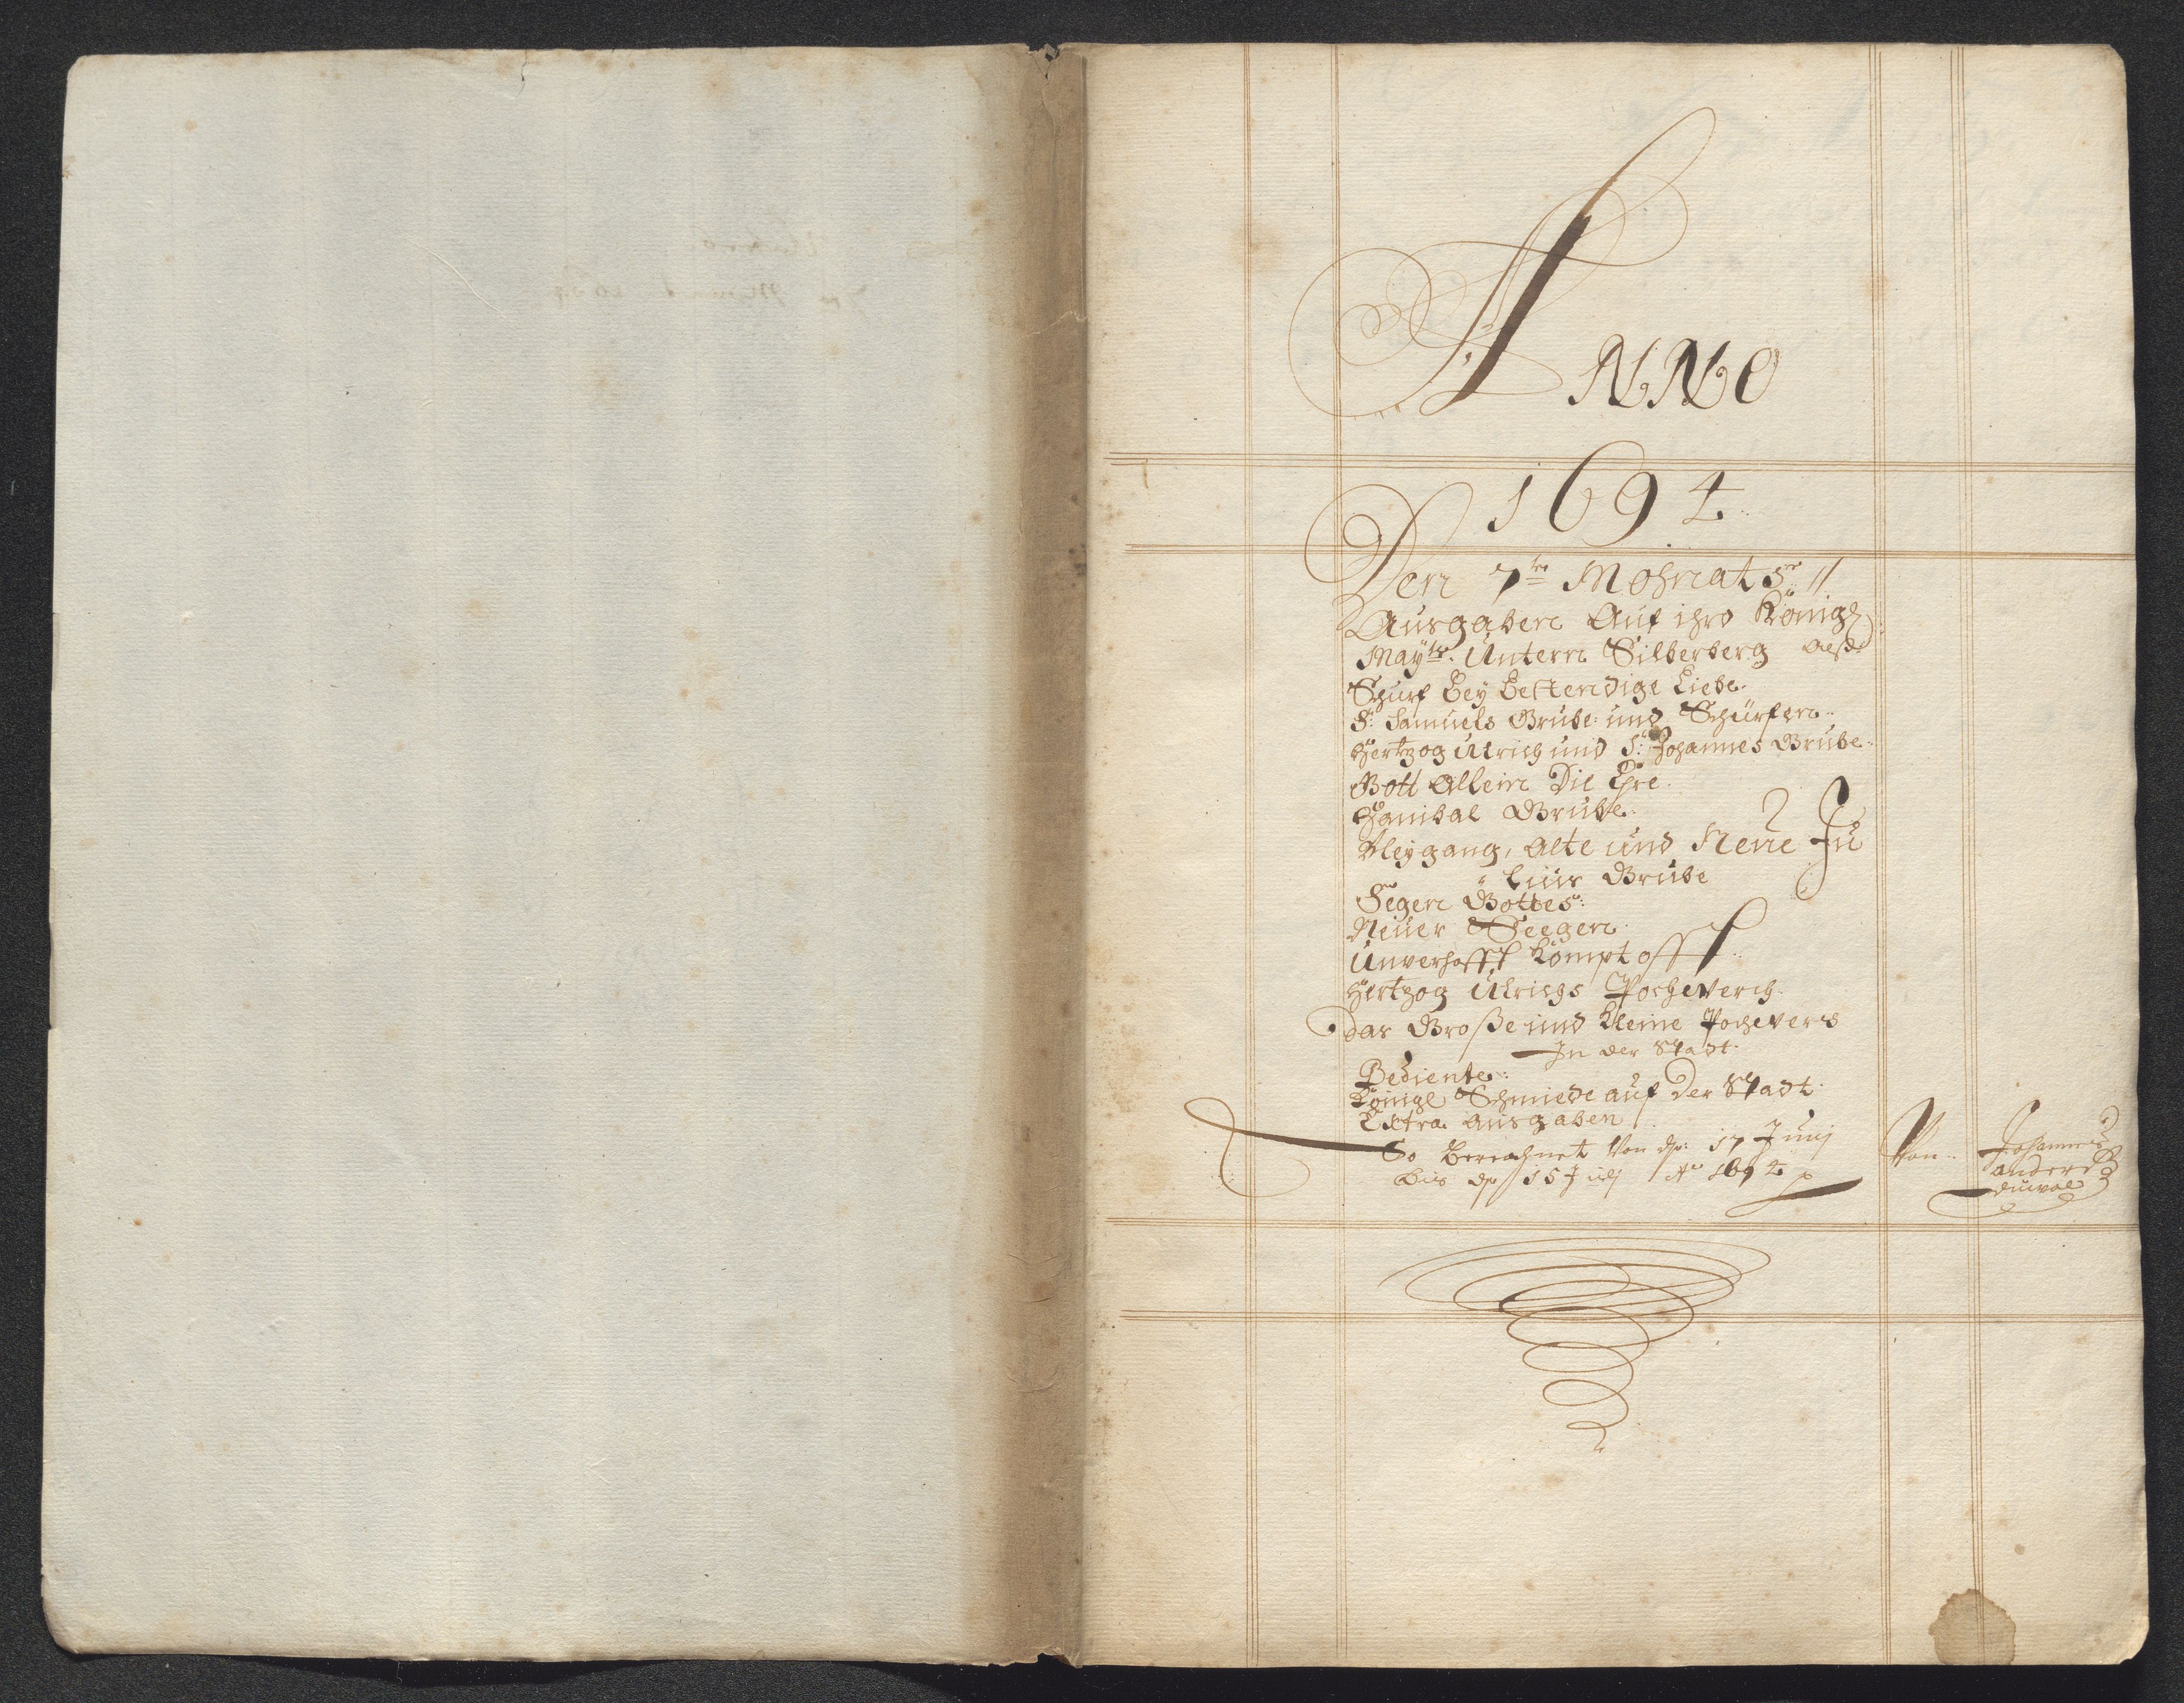 ANNO
1694
Den 7te Mohnats
Ausgaben Auf ihro Königl
Mayts. Untern Silberberg alß
Schurf Bey Bestendige Liebe.
S: Samuels Grube und Schürfen
Hertzog Ulrich und S: Johannes Grube
Gott Allein Die Ehre.
Hanibal Grube.
Bleygang, Alte und Neue Ju
lius Grube
Segen Gottes:
Neuer Seegen.
Unverhofft Kompt offt
Hertzog Ulrichs Pochewerch.
das Große und Kleine Pochewerch
In der Stadt.
Bediente:
Königl Schmiede auf Der Stadt.
Extra Ausgaben
So Berechnet Von dn: 17 Junij
bis dn 15 Julij Ao 1694
Von Johannes
Anders
duval